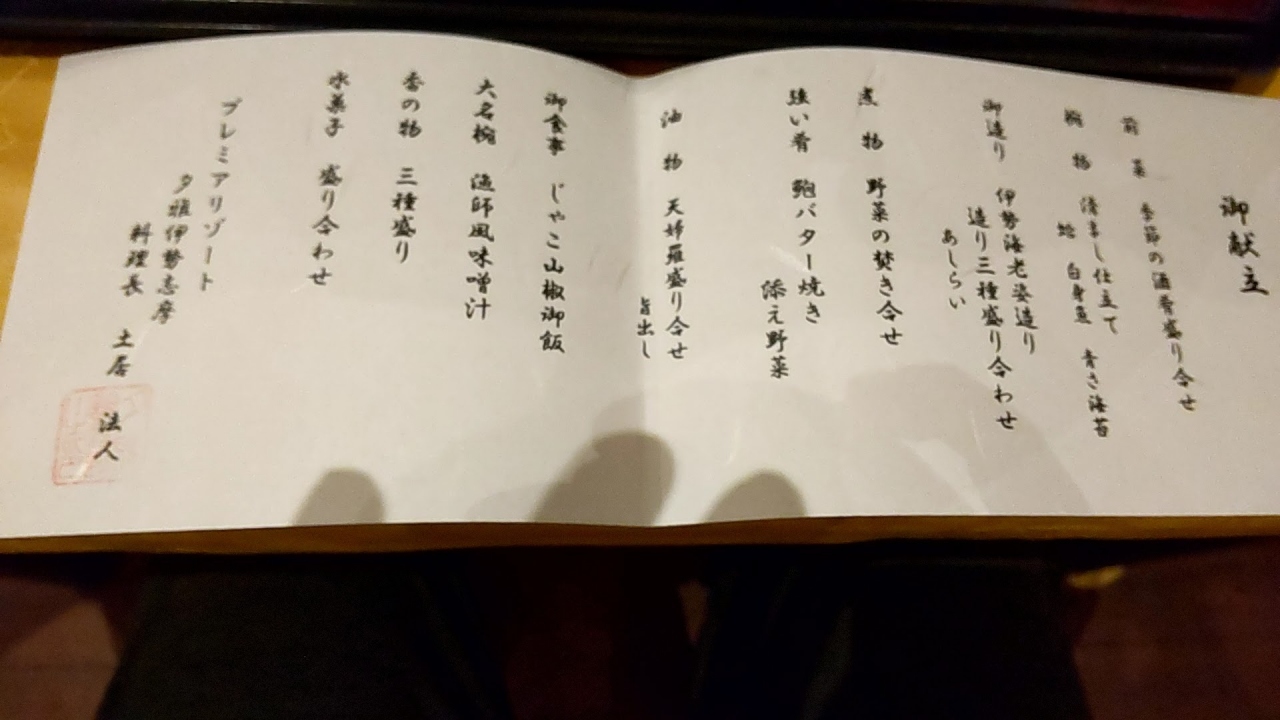 御献立
前菜 季節の酒肴盛り合せ
椀物 清まし仕立て
蛤 白身魚 青さ海苔
御造り 伊勢海老姿造り
造り三種盛り合わせ
あしらい
煮物 野菜の焚き合せ
強い肴 鮑バター焼き
添え野菜
油物 天婦羅盛り合せ
旨出し
御食事 じゃこ山椒御飯
大名椀 漁師風味噌汁
香の物 三種盛り
水菓子 盛り合わせ
プレミアリゾート
夕雅伊勢志摩
料理長 土居 法人